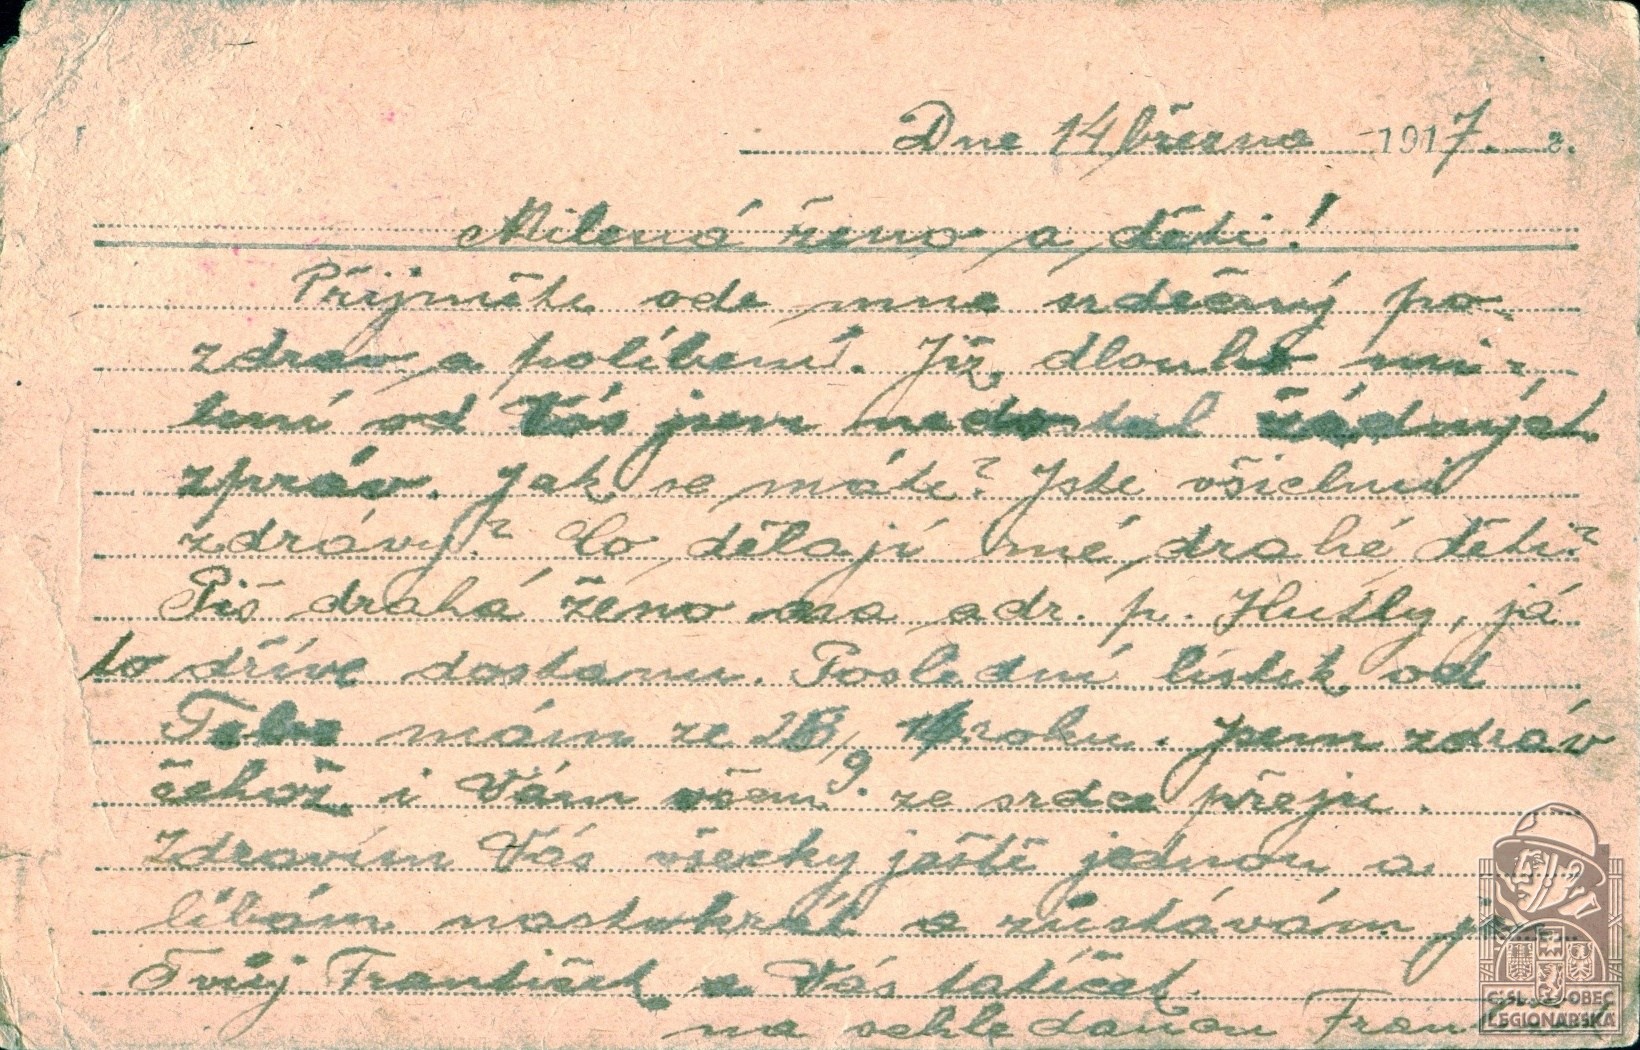 Dne 14 března 1917. г.
Milená ženo a děti!
Přijměte ode mne srdečný po-
zdrav a políbení. Již dlouho mi-
lení od Vás jsem nedostal žádných
zpráv. Jak se máte? Jste všichni
zdrávy? Co dělají mé drahé děti?
Piš drahá ženo na adr. p. Hušly, já
to dříve dostanu. Poslední lístek od
Tebe mám ze 28/9. roku. Jsem zdráv
čehož i Vám všem ze srdce přeju.
Zdravím Vás všecky ještě jednou a
líbám nastokrát a zůstávám
Tvůj František a Vás tatíček.
na schledanou
ČSL. OBEC
LEGIONÁŘSKÁ